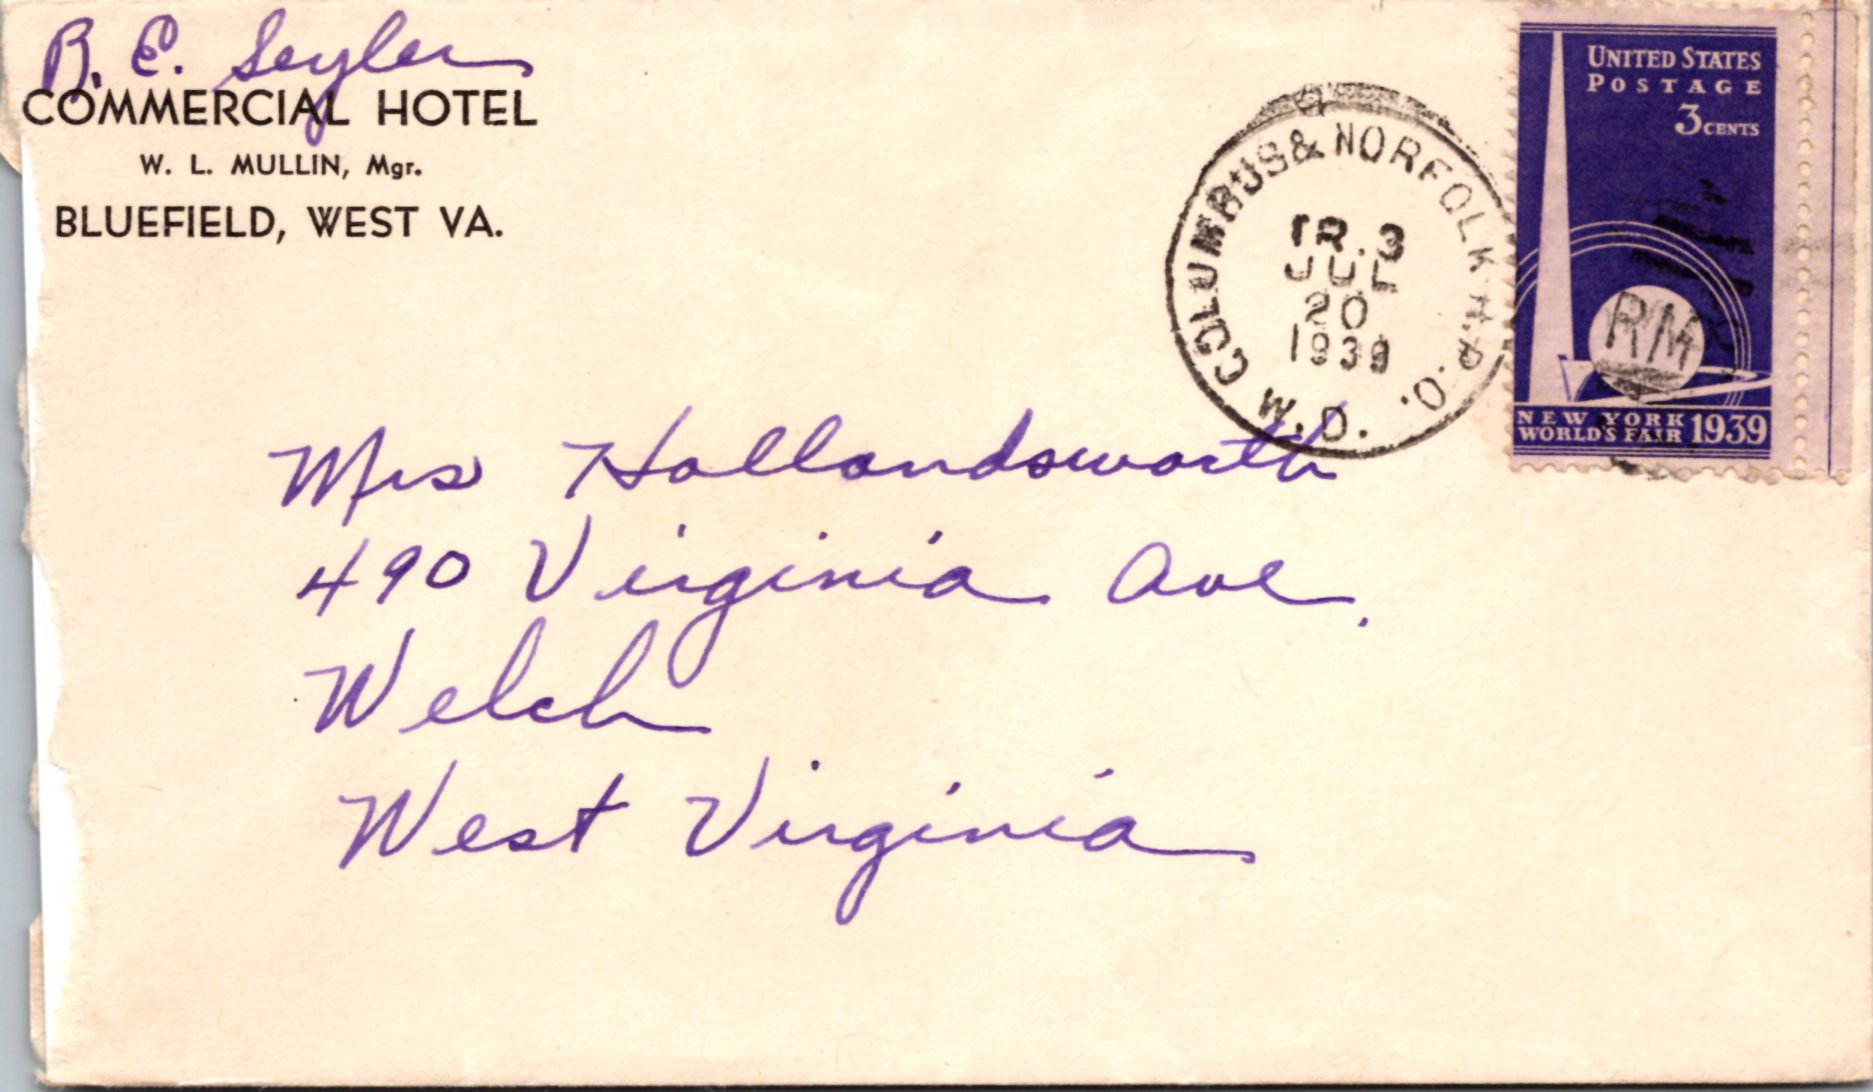 R. E. Seyler
COMMERCIAL HOTEL
W. L. MULLIN, Mgr.
BLUEFIELD, WEST VA.
COLUMBUS & NORFOLK R.P.O.
TR. 3
JUL
20
1939
W.D.
UNITED STATES
POSTAGE
3 CENTS
RM
NEW YORK
WORLD'S FAIR 1939
Mrs Hollandsworth
490 Virginia Ave.
Welch
West Virginia